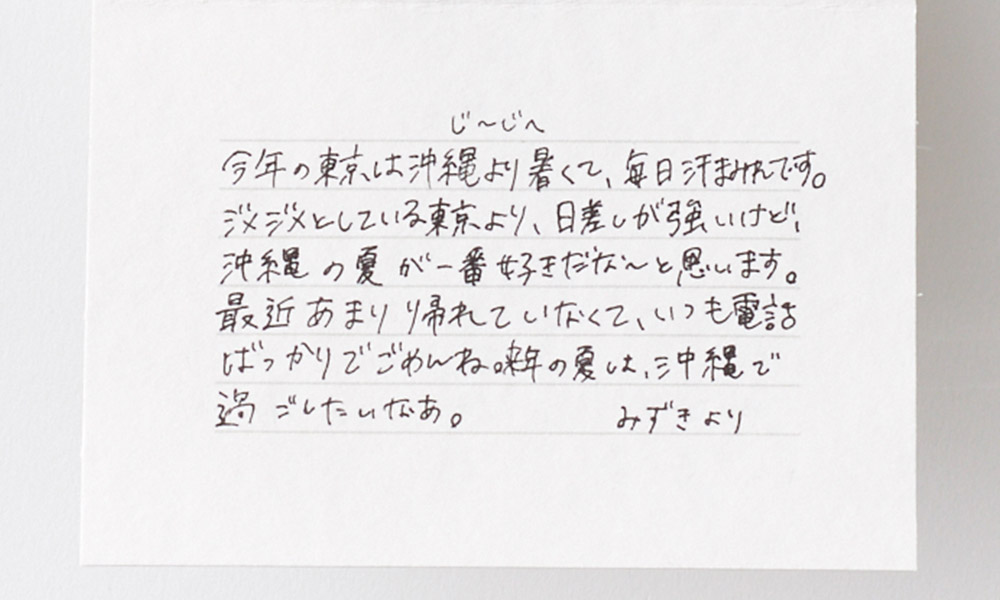 じ〜じへ
今年の東京は沖縄より暑くて、毎日汗まみれです。
ジメジメとしている東京より、日差しが強いけど、
沖縄の夏が一番好きだな〜と思います。
最近あまり帰れていなくて、いつも電話
ばっかりでごめんね。来年の夏は、沖縄で
過ごしたいなあ。 みずきより